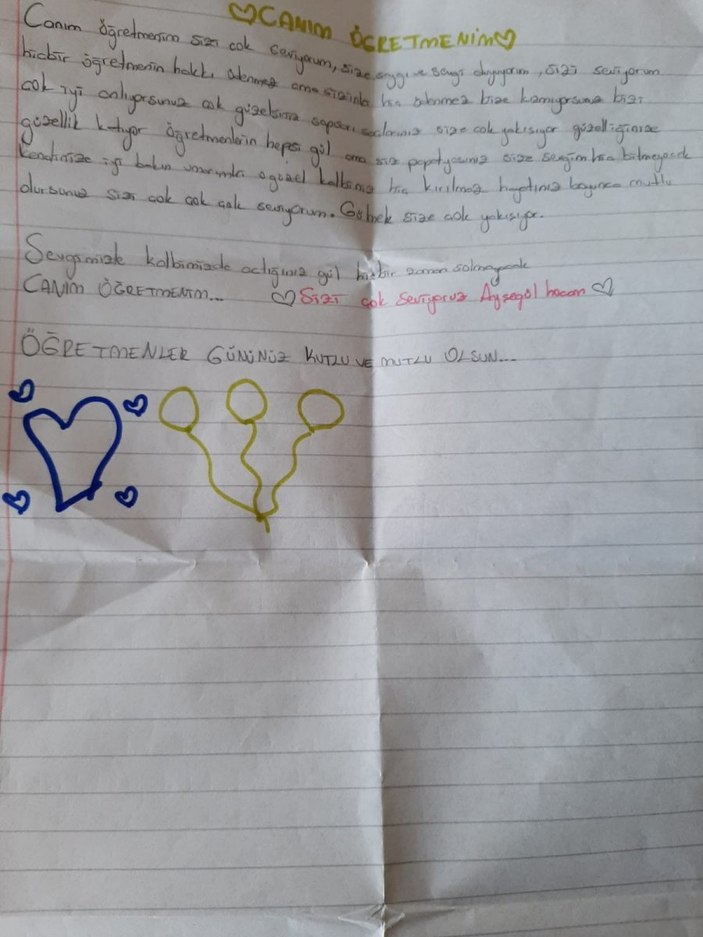 CANIM ÖĞRETMENİM
Canım öğretmenim sizi çok seviyorum, size saygı ve sevgi duyuyorum, sizi seviyorum
hiçbir öğretmenin hakkı ödenmez ama sizinki hiç ödenmez bize kızmıyorsunuz bizi
çok iyi anlıyorsunuz çok güzelsiniz sapsarı saçlarınız size çok yakışıyor güzelliğinize
güzellik katıyor öğretmenlerin hepsi gül ama siz papatyasınız size sevgim hiç bitmeyecek
kendinize iyi bakın umarım o güzel kalbiniz hiç kırılmaz hayatınız boyunca mutlu
olursunuz sizi çok çok çok seviyorum. size çok yakışıyor.
Sevginizle kalbimizde açtığınız gül hiçbir zaman solmayacak
CANIM ÖĞRETMENİM... Sizi çok seviyoruz Ayşegül hocam
ÖĞRETMENLER GÜNÜNÜZ KUTLU VE MUTLU OLSUN...